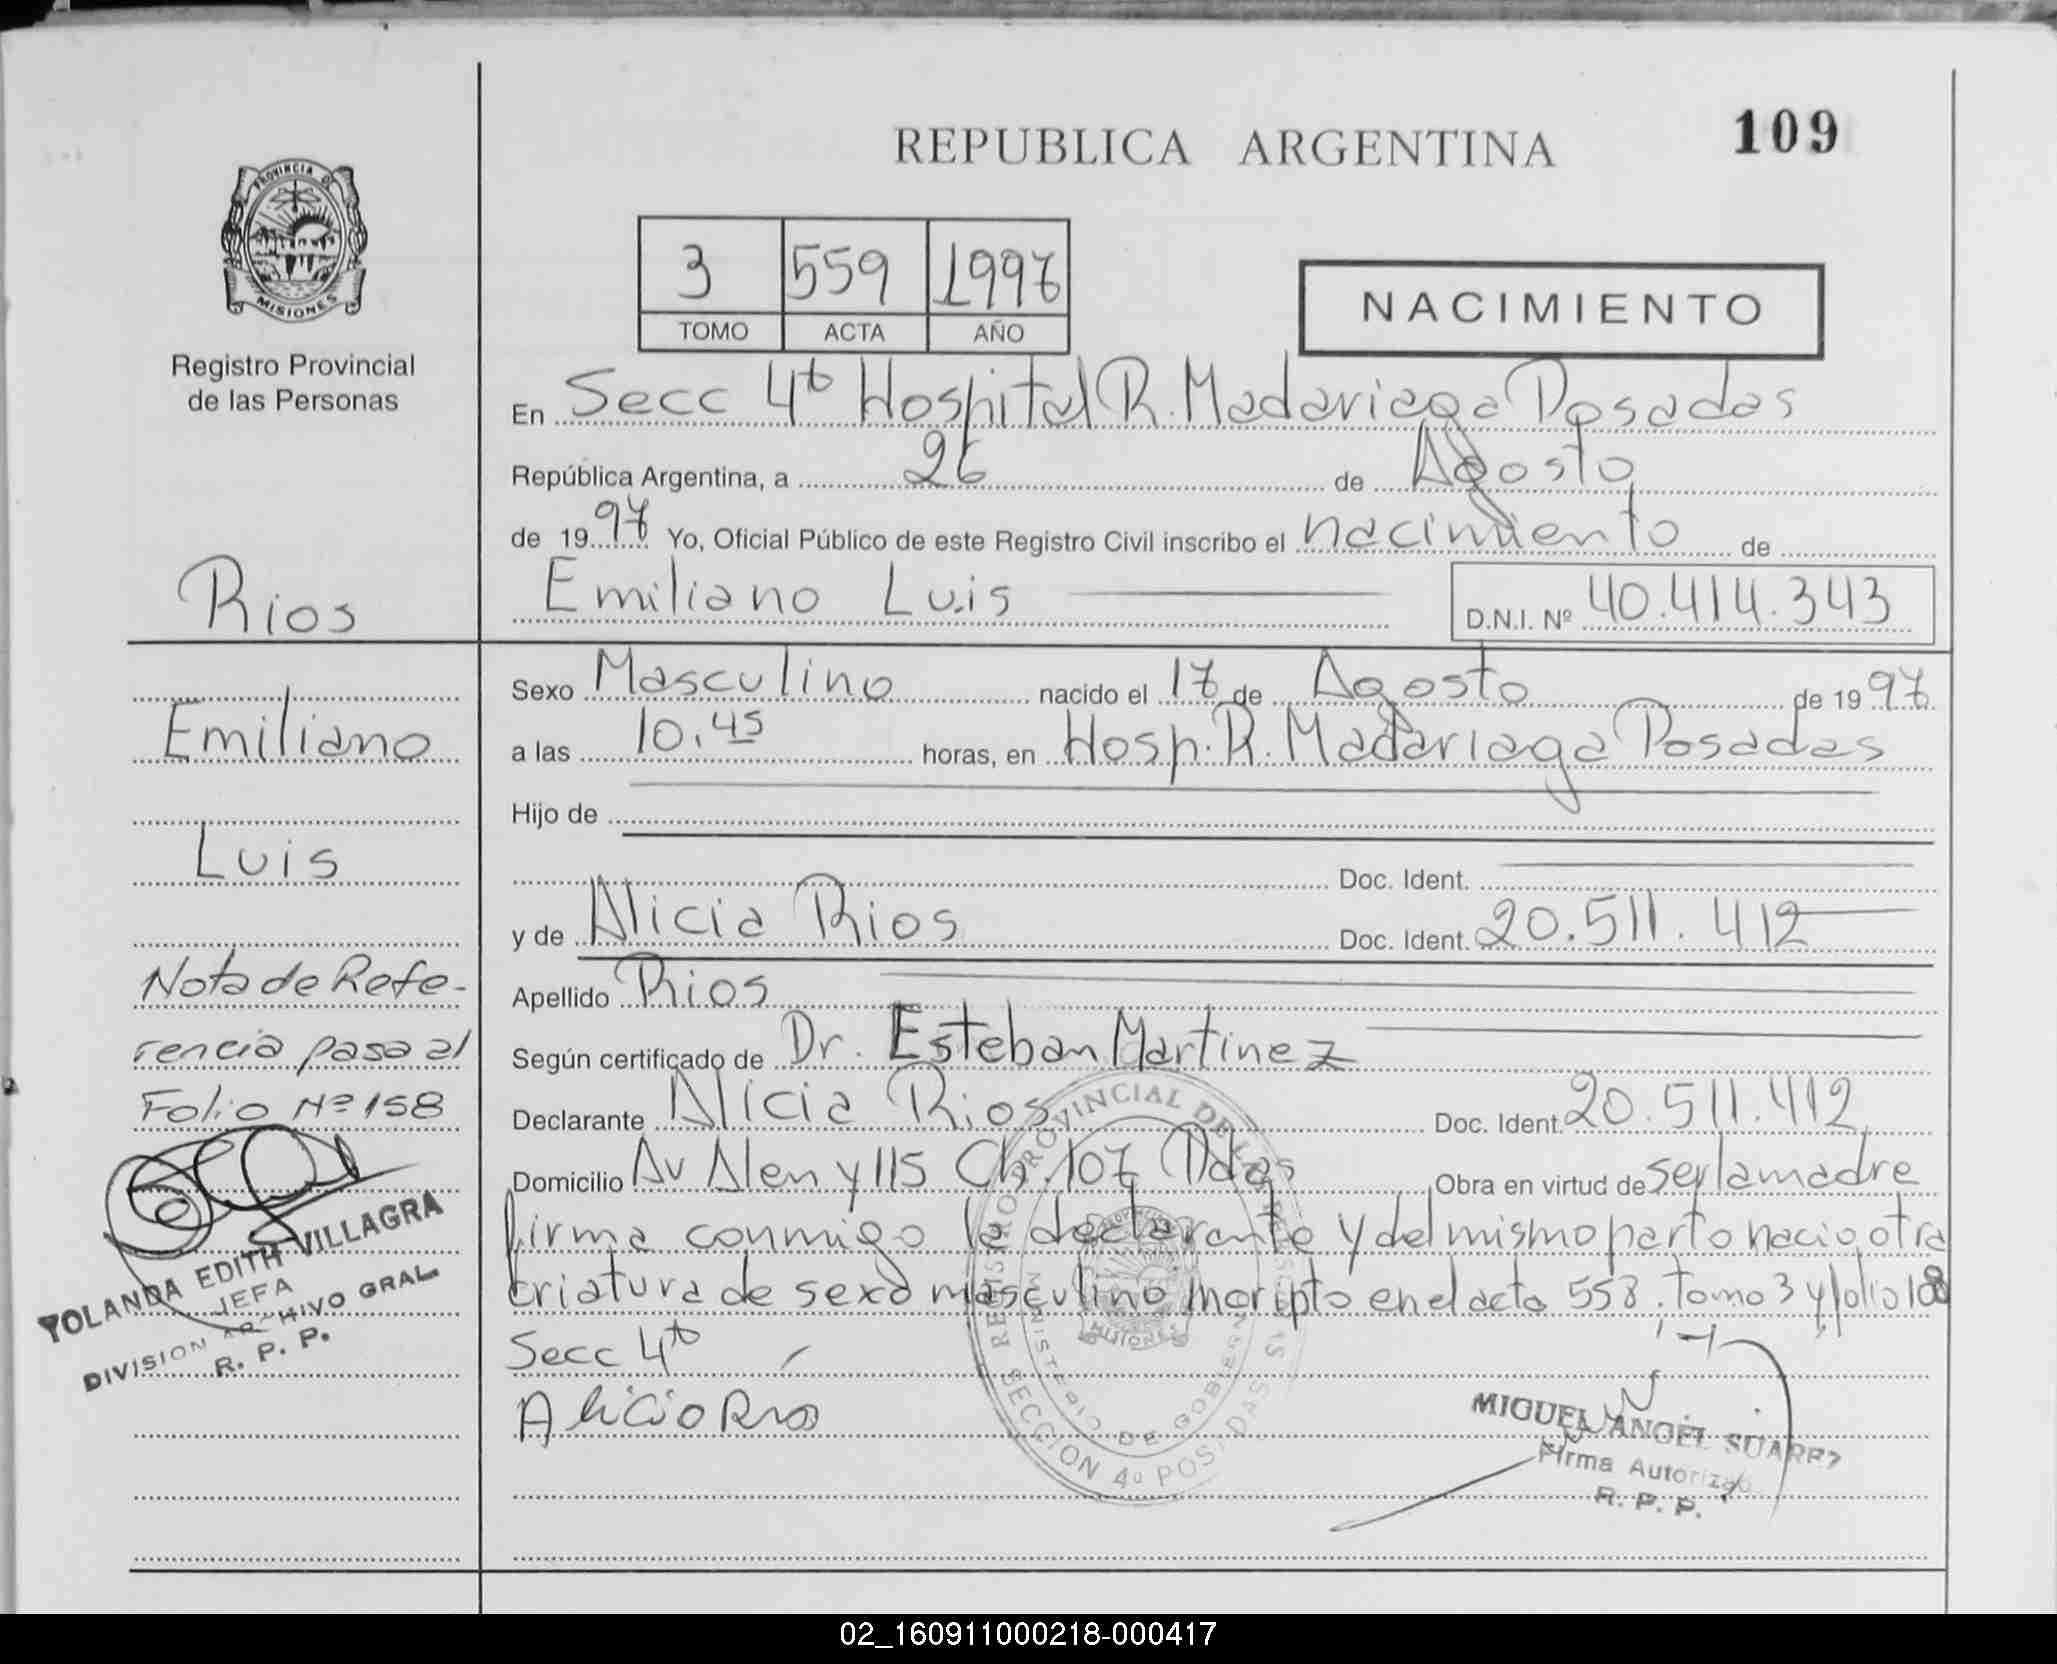 REPUBLICA ARGENTINA
109
PROVINCIA DE
MISIONES
Registro Provincial
de las Personas
3 559 1997
TOMO ACTA AÑO
NACIMIENTO
En Secc 4ta Hospital R. Madariaga Posadas
República Argentina, a 26 de Agosto
de 1997 Yo, Oficial Público de este Registro Civil inscribo el nacimiento de
Emiliano Luis D.N.I. Nº 40.414.343
Sexo Masculino nacido el 17 de Agosto de 1997
a las 10.45 horas, en Hosp. R. Madariaga Posadas
Hijo de
Doc. Ident.
y de Alicia Rios Doc. Ident. 20.511.412
Apellido Rios
Según certificado de Dr. Esteban Martinez
Declarante Alicia Rios Doc. Ident. 20.511.412
Domicilio Av Alen y 115 Ch. 107 Pdas Obra en virtud de ser la madre
firma conmigo la declarante y del mismo parto nacio otra
criatura de sexo masculino inscripto en el acta 558. tomo 3 y folio 108
Secc 4ta
Alicia Rios
REGISTRO PROVINCIAL DE LAS PERSONAS
SECCION 4º POSADAS
MINISTERIO DE GOBIERNO
MISIONES
MIGUEL ANGEL SUAREZ
Firma Autorizada
R. P. P.
Rios
Emiliano
Luis
Nota de Refe-
rencia pasa al
Folio Nº 158
YOLANDA EDITH VILLAGRA
JEFA
DIVISION ARCHIVO GRAL.
R. P. P.
02_160911000218-000417